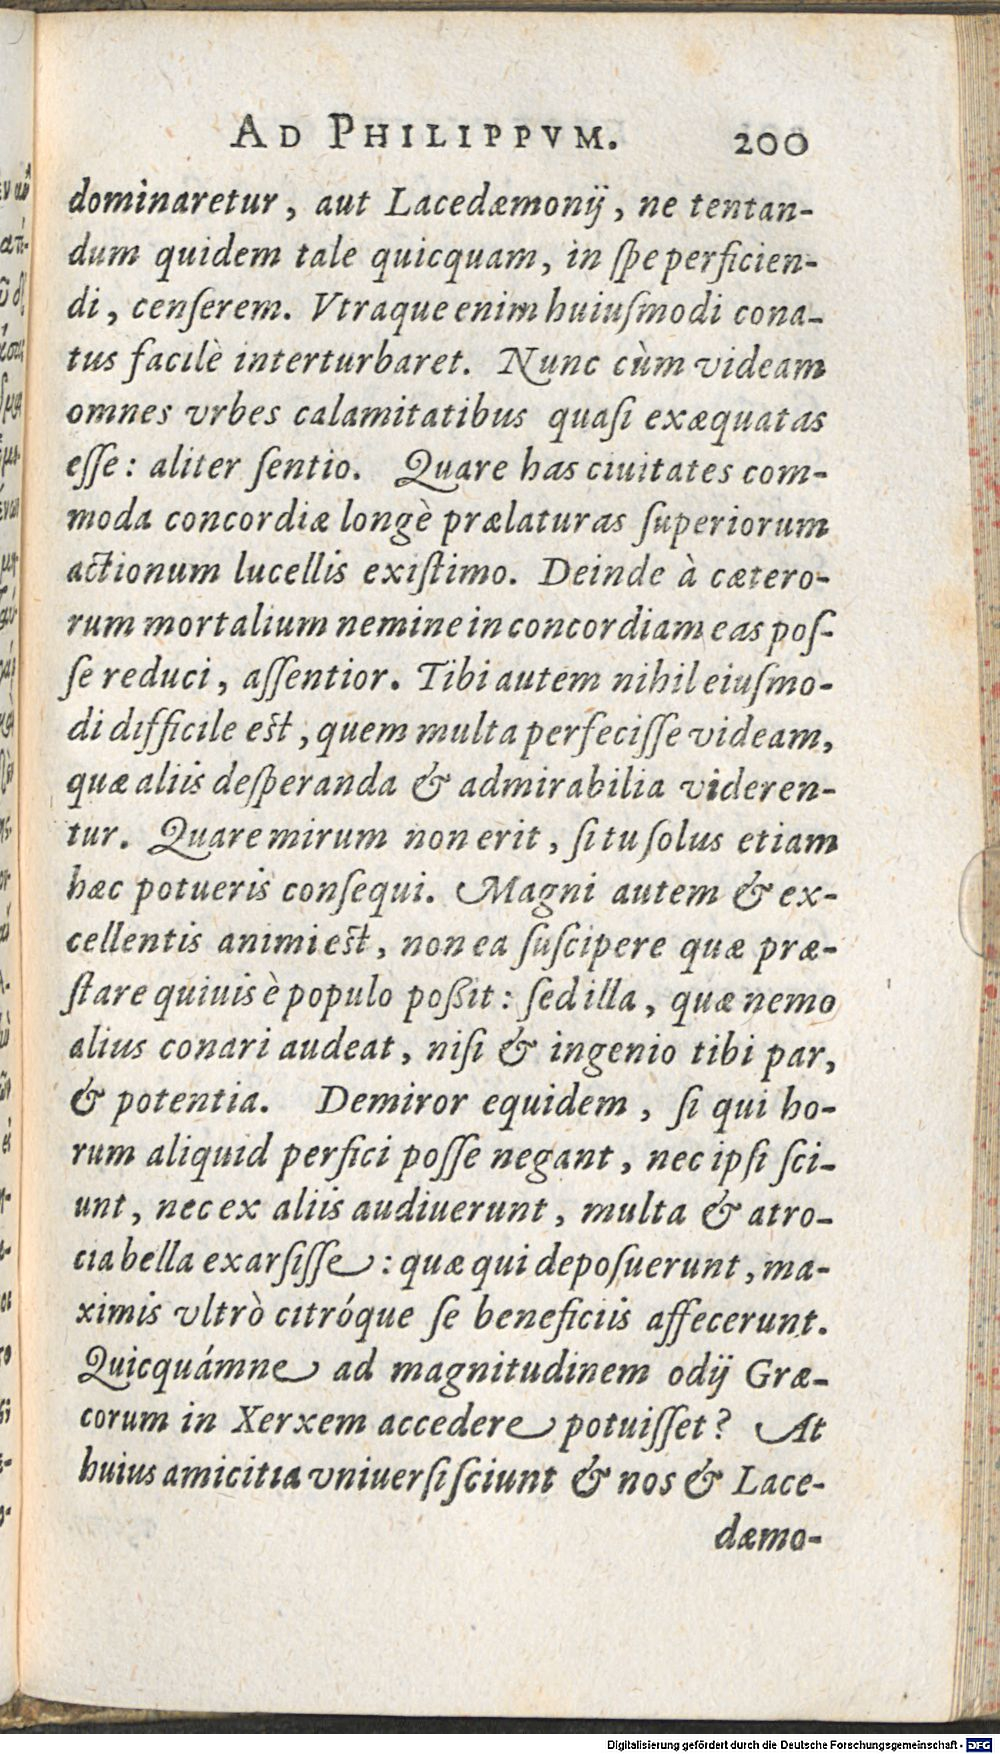 AD PHILIPPVM. 200
dominaretur, aut Lacedæmonij, ne tentan-
dum quidem tale quicquam, in ſpe perficien-
di, cenſerem. Vtraque enim huiuſmodi cona-
tus facilè interturbaret. Nunc cùm videam
omnes vrbes calamitatibus quaſi exæquatas
eſſe: aliter ſentio. Quare has ciuitates com-
moda concordiæ longè prælaturas ſuperiorum
actionum lucellis exiſtimo. Deinde à cætero-
rum mortalium nemine in concordiam eas poſ-
ſe reduci, aſſentior. Tibi autem nihil eiuſmo-
di difficile eſt, quem multa perfeciſſe videam,
quæ aliis deſperanda & admirabilia videren-
tur. Quare mirum non erit, ſi tu ſolus etiam
hæc potueris conſequi. Magni autem & ex-
cellentis animi eſt, non ea ſuſcipere quæ præ-
ſtare quiuis è populo poßit: ſed illa, quæ nemo
alius conari audeat, niſi & ingenio tibi par,
& potentia. Demiror equidem, ſi qui ho-
rum aliquid perfici poſſe negant, nec ipſi ſci-
unt, nec ex aliis audiuerunt, multa & atro-
cia bella exarſiſſe: quæ qui depoſuerunt, ma-
ximis vltrò citróque ſe beneficiis affecerunt.
Quicquámne ad magnitudinem odij Græ-
corum in Xerxem accedere potuiſſet? At
huius amicitia vniuerſi ſciunt & nos & Lace-
dæmo-
Digitalisierung gefördert durch die Deutsche Forschungsgemeinschaft - DFG